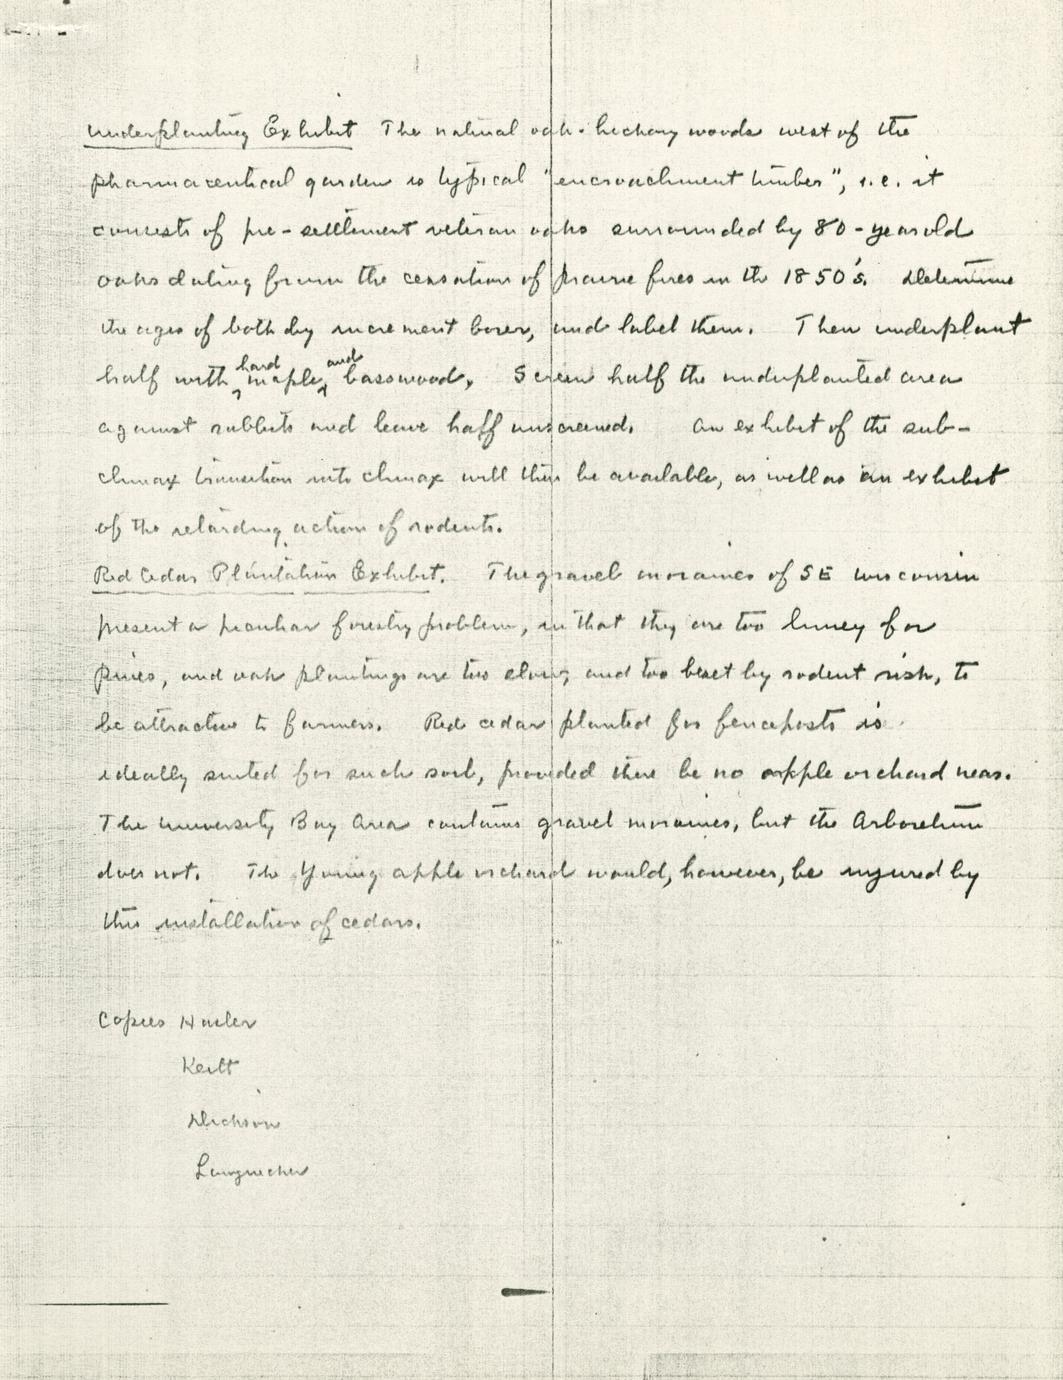 Underplanting Exhibit The natural oak-hickory woods west of the
pharmaceutical garden is typical "encroachment timber", i.e. it
consists of pre-settlement veteran oaks surrounded by 80-year old
oaks dating from the cessation of prairie fires in the 1850's. Determine
the ages of both by increment borer, and label them. Then underplant
half with hard maple, and basswood. Screen half the underplanted area
against rabbits and leave half unscreened. An exhibit of the sub-
climax transition into climax will then be available, as well as an exhibit
of the retarding action of rodents.
Red Cedar Plantation Exhibit. The gravel moraines of SE Wisconsin
present a peculiar forestry problem, in that they are too limey for
pines, and oak plantings are too slow, and too beset by rodent risk, to
be attractive to farmers. Red cedar planted for fenceposts is
ideally suited for such soil, provided there be no apple orchard near.
The University Bay Area contains gravel moraines, but the Arboretum
does not. The Young apple orchard would, however, be injured by
this installation of cedars.
Copies
Keitt
Dickson
Longnecker